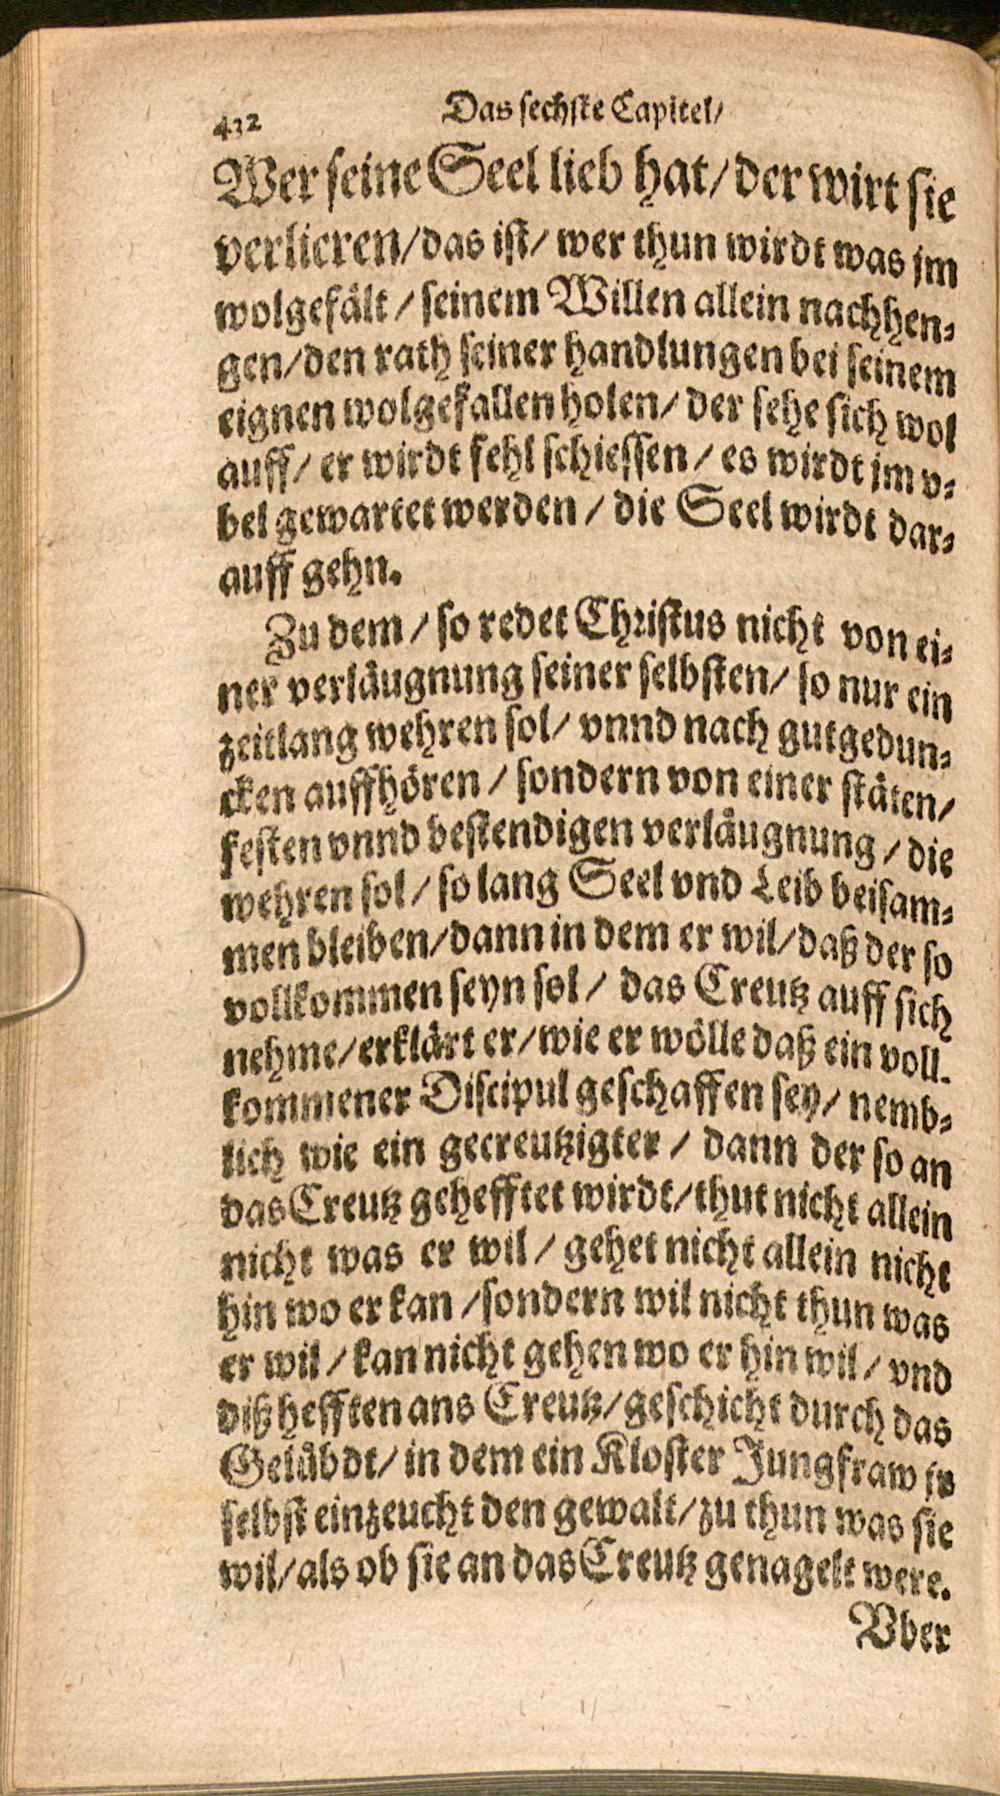 432 Das sechste Capitel/
Wer seine Seel lieb hat/ der wirt sie
verlieren/ das ist/ wer thun wirdt was jm
wolgefält / seinem Willen allein nachhen⸗
gen/ den rath seiner handlungen bei seinem
eignen wolgefallen holen/ der sehe sich wol
auff/ er wirdt fehl schiessen / es wirdt jm v⸗
bel gewartet werden / die Seel wirdt dar⸗
auff gehn.
Zu dem / so redet Christus nicht von ei⸗
ner verläugnung seiner selbsten/ so nur ein
zeitlang wehren sol/ vnnd nach gutgedun⸗
cken auffhören / sondern von einer stäten/
festen vnnd bestendigen verläugnung / die
wehren sol / so lang Seel vnd Leib beisam⸗
men bleiben/ dann in dem er wil/ daß der so
vollkommen seyn sol / das Creutz auff sich
nehme/ erklärt er/ wie er wölle daß ein voll⸗
kommener Discipul geschaffen sey/ nemb⸗
lich wie ein gecreutzigter / dann der so an
das Creutz gehefftet wirdt/ thut nicht allein
nicht was er wil / gehet nicht allein nicht
hin wo er kan / sondern wil nicht thun was
er wil / kan nicht gehen wo er hin wil / vnd
diß hefften ans Creutz/ geschicht durch das
Gelübdt/ in dem ein Kloster Jungfraw jr
selbst einzeucht den gewalt/ zu thun was sie
wil/ als ob sie an das Creutz genagelt were.
Vber